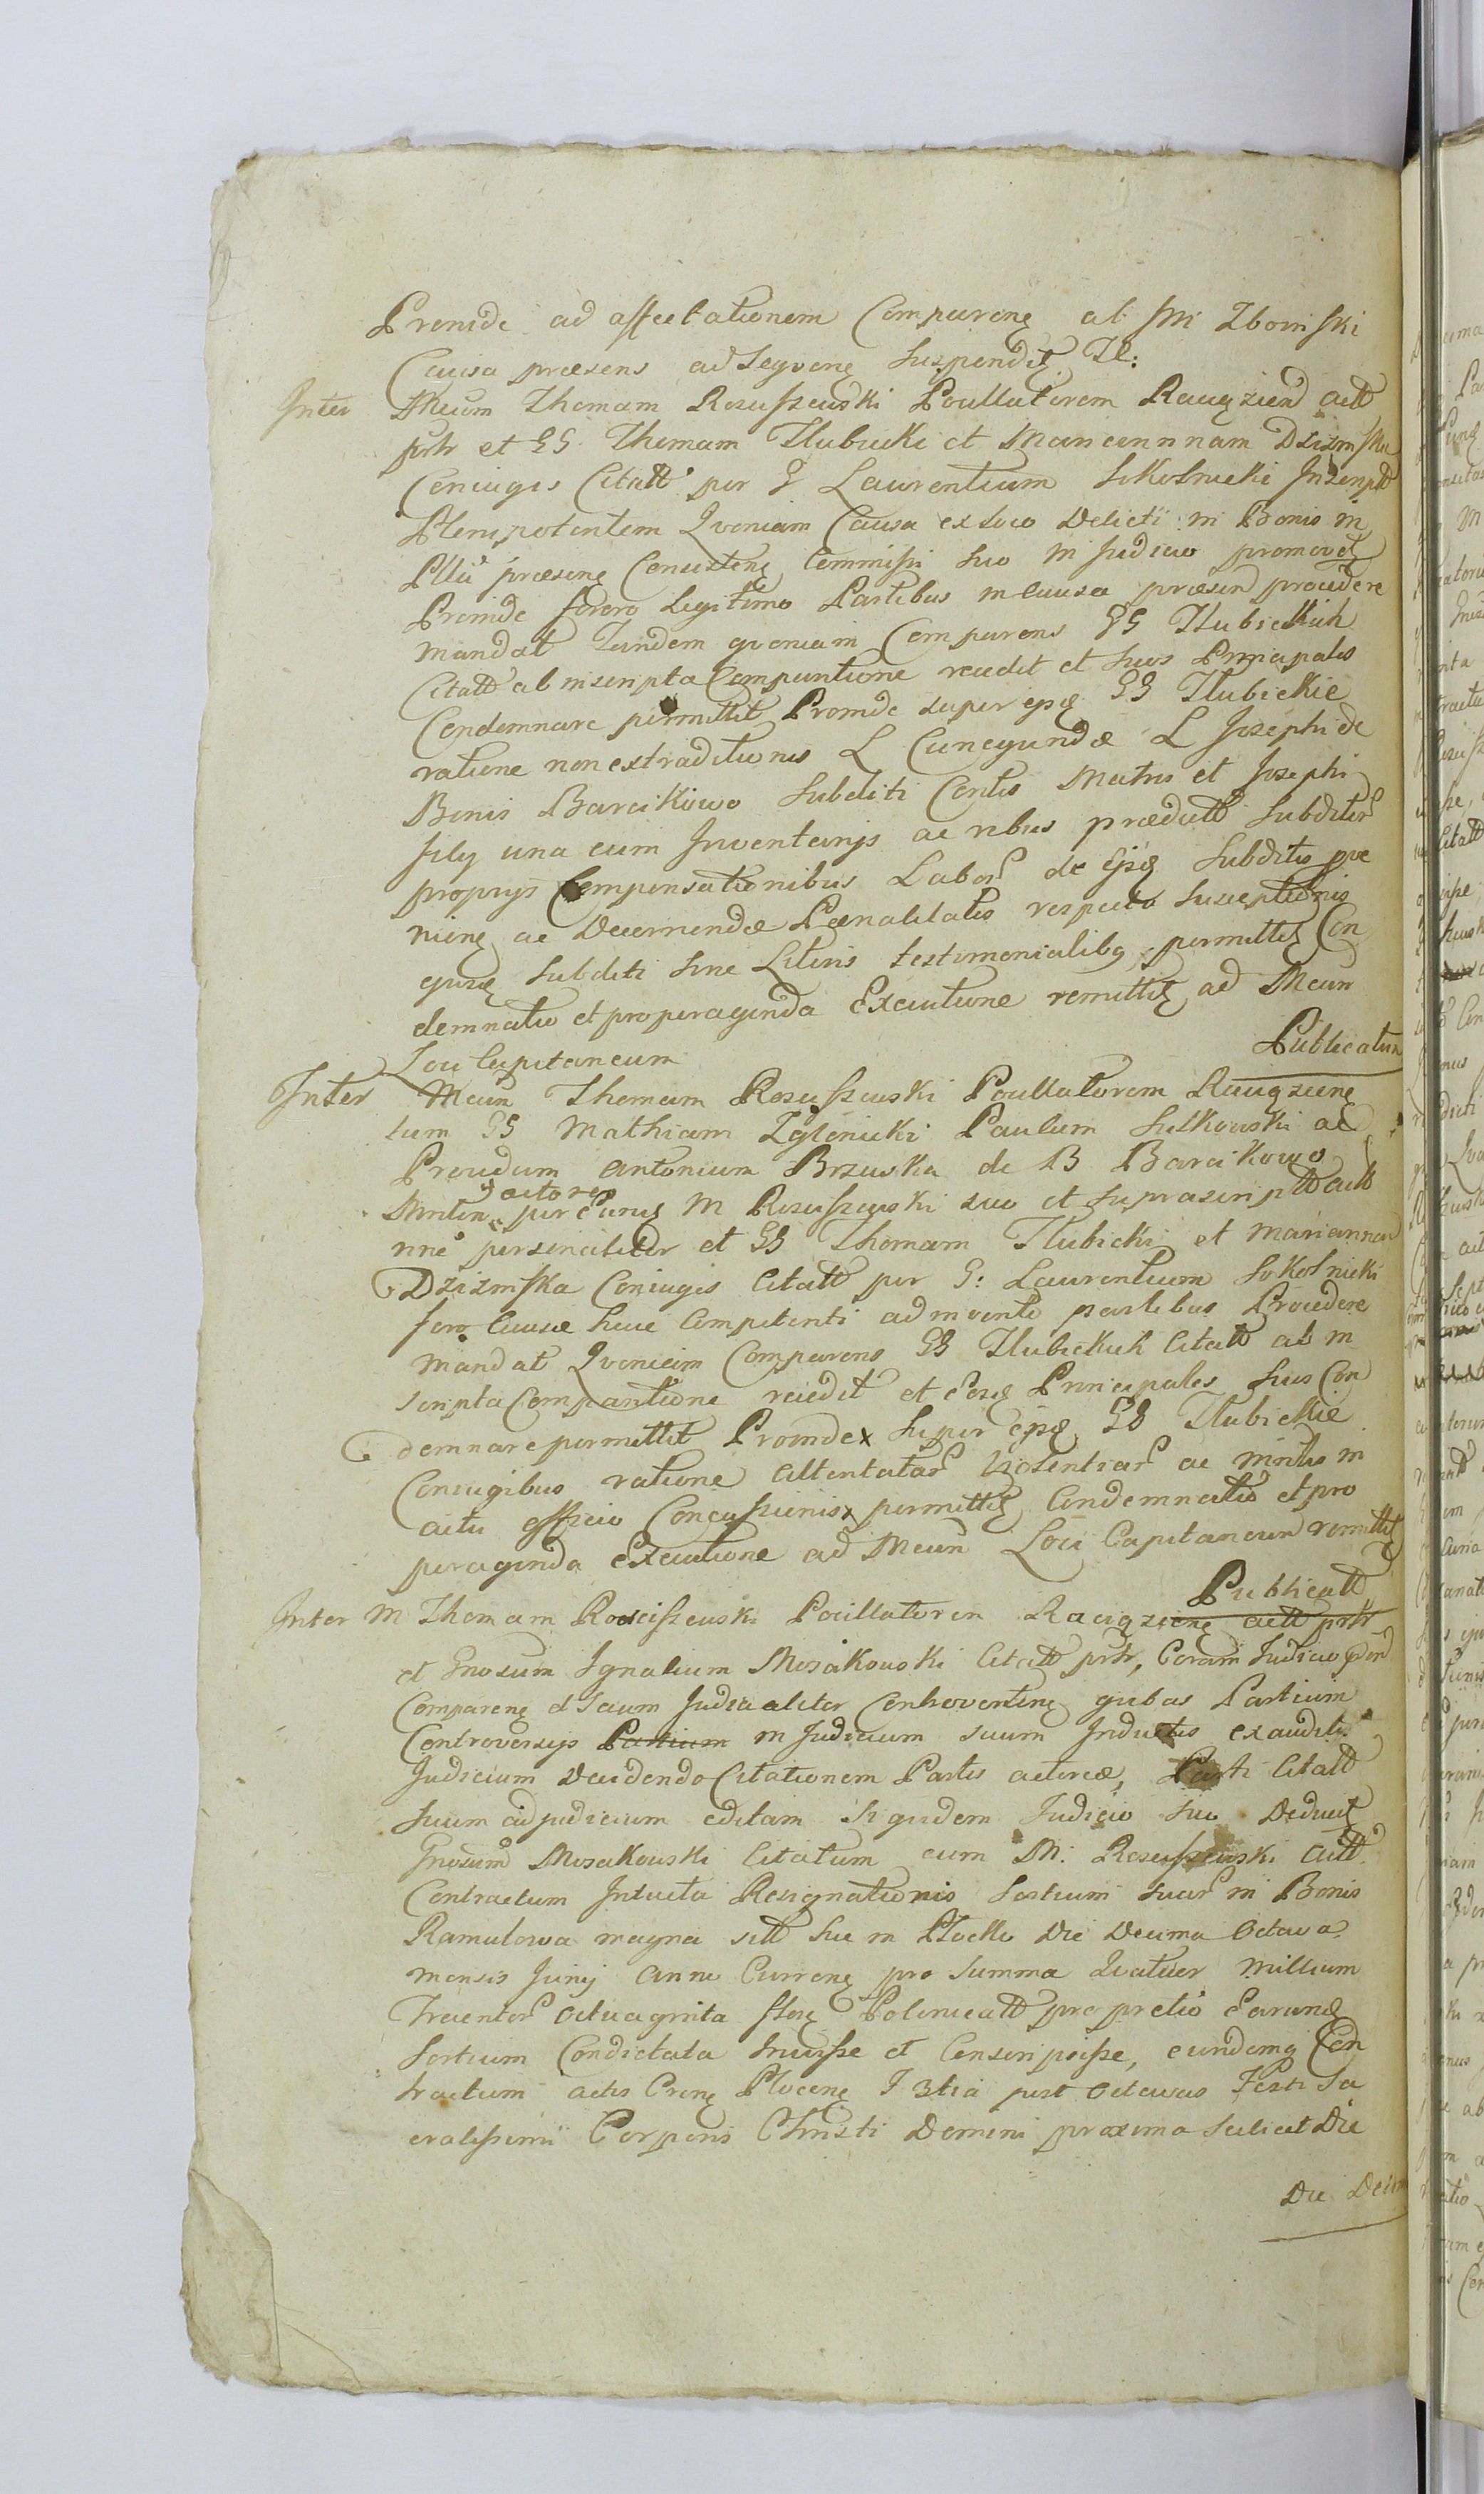 Proinde ad affectationem Comparenẹ ab Mi Zboinski
Causa præsens ad Seqvenẹ Suspenditẹ Tl:
Inter Mcum Thomam Rosciszewski Pocillatorem Raciązien actt
prtr et GG Thomam Tlubicki et Mariannnam Dzizmska
Coniuges Citatt per G Laurentium Sokolnicki Inscriptt
Plenipotentem Qvoniam Causa ex Loco Delicti in Bonis in
Pltu præsenẹ Consistenẹ Commissi Suo in Judicio promovetẹ
Proinde forero legitimo Partibus in Causa præsen procedere
mandat Tandem qvoniam Comparens GG Tlubickich
Citatt ab inscripta Comparitione recedit et Suos Principales
Condemnare permittit Proinde super ipsẹ GG Tlubickie
ratione non extraditionis L Cunegundæ L Josephi de
Bonis Barcikowo Subditi Centis Matris et Josephi
filij una cum Inventarijs ac rebus prædictt Subditor
proprijs Compensationibus Labor de Ejsẹ Subditis pve
nienẹ ac Decernendæ Pænalitatis respectu Susceptionis
ejusẹ Subditi Sine Literis testimonialibq permittitẹ Con
demnatio et pro peragenda Executione remittitẹ ad Mcum
Loci Capitaneum
Publicatum
Inter Mcum Thomam Rosciszewski Pocillatorem Raciązienẹ
tum GG Mathiam Zglenicki Paulum Sulkowski ac
Providum Antonium Brzuska de B Barcikowo
actores
Mrlen per Eunẹ M Rosciszewski suo et suprascriptt actt
nne personaliter et GG Thomam Tlubicki et Mariannam
Dzizmska Coniuges Citatt per G: Laurentium Sokolnicki
foro Causæ huic Competenti ad invento partibus Procedere
mandat Qvoniam Comparens GG Tlubickich Citatt ab in
scripta Comparitione recedit et Eosẹ Principales Suos Con
demnare permittit Proinde x Super ipsẹ GG Tlubickie
Coniugibus ratione Attentatar Violentiar ac Mrilis in
actu officio Concussionis x permittitẹ Condemnatio et pro
peragenda Executione ad Mcum Loci Capitaneum remittitẹ
Publicatt
Inter M Thomam Roscissewski Pocillatorem Raciązienẹ actt prtr
et Gnosum Ignatium Mosakowski Citatt prtr, Coram Judicio
Comparenẹ et Secum Judicialiter Controvertenẹ qvibus Partium
Controversijs Partium in Judicium suum Inductis exauditis
Judicium Decidendo Citationem Partis actoreæ, Parti Citatt
Suum ad judicium editam Siqvidem Judicio Suo Deducitẹ
Gnosum Mosakowski Citatum cum M: Rosciszewski Actt
Contractum Intuitu Resignationis Sortium Suar in Bonis
Ramutowa magna sitt Hic in Plocko Die Decima Octava
mensis Junij Anno Currenẹ pro Summa Qvatuor millium
Trecentor Octuaginta florẹ Polonicatt pro pretio Earunẹ
Sortium Condictata Inivisse et Conscripsisse, eundemqẹ Con
tractum actis Crenẹ Plocenẹ F 3tia post Octavas Festi Sa
cratissimi Corporis Christi Domini proxima Scilicet Die
Die Decim